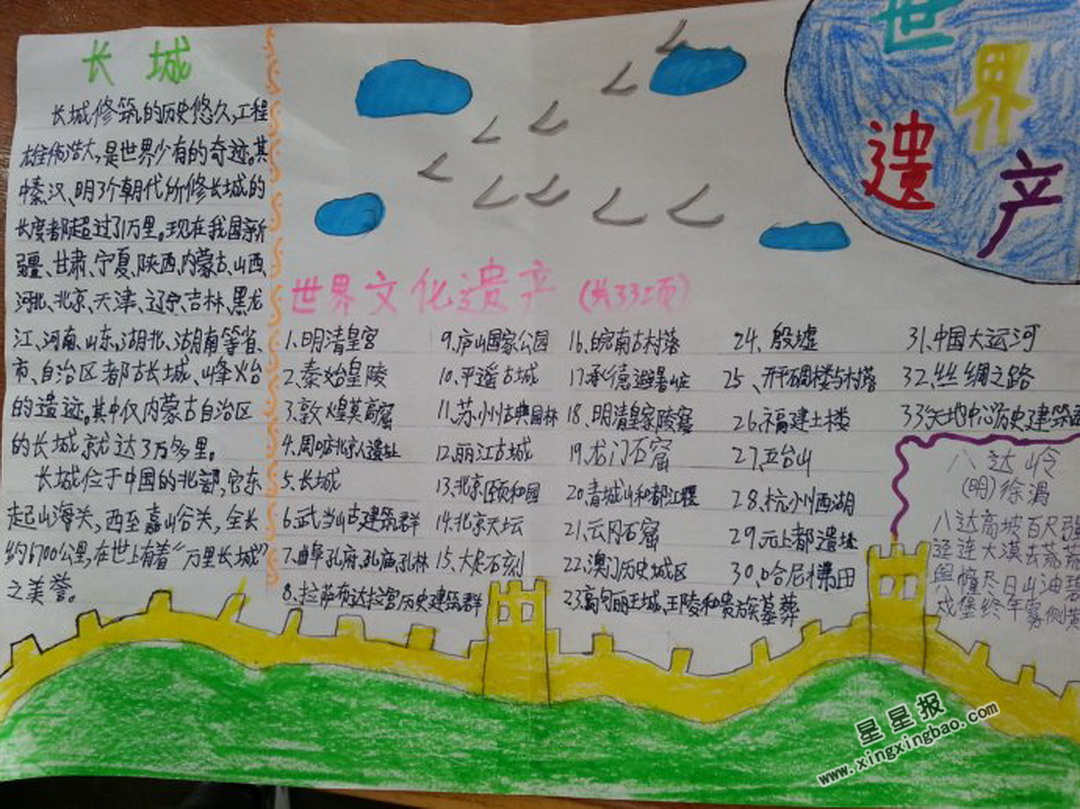 世界
遗产
长城
长城修筑的历史悠久,工程
雄伟浩大,是世界少有的奇迹。其
中秦汉、明3个朝代所修长城的
长度都超过了1万里。现在我国新
疆、甘肃、宁夏、陕西、内蒙古、山西、
河北、北京、天津、辽宁、吉林、黑龙
江、河南、山东、湖北、湖南等省、
市、自治区都古长城、烽火台
的遗迹。其中仅内蒙古自治区
的长城就达3万多里。
长城位于中国的北部,它东
起山海关,西至嘉山谷关,全长
约6700公里,在世上有着“万里长城”
之美誉。
世界文化遗产(共33项)
1、明清皇宫
2、秦始皇陵
3、敦煌莫高窟
4、周口店北京人遗址
5、长城
6、武当山古建筑群
7、曲阜孔府、孔庙、孔林
8、拉萨布达拉宫历史建筑群
9、庐山国家公园
10、平遥古城
11、苏州古典园林
12、丽江古城
13、北京颐和园
14、北京天坛
15、大足石刻
16、皖南古村落
17、承德避暑山庄
18、明清皇家陵寝
19、龙门石窟
20、青城山和都江堰
21、云冈石窟
22、澳门历史城区
23、高句丽王城、王陵和贵族墓葬
24、殷墟
25、开平碉楼与村落
26、福建土楼
27、五台山
28、杭州西湖
29、元上都遗址
30、哈尼梯田
31、中国大运河
32、丝绸之路
33、天地中心历史建筑
八达岭
(明)徐渭
八达高坡百尺强
迳连大漠去荒荒
舆幢尽日山油碧
戍堡终年雾侧黄
星星报
www.xingxingbao.com